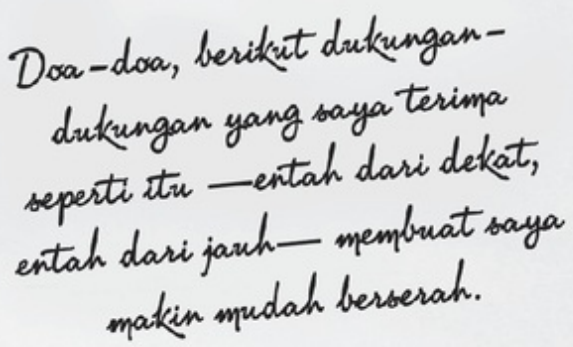 Doa-doa, berikut dukungan-
dukungan yang saya terima
seperti itu —entah dari dekat,
entah dari jauh— membuat saya
makin mudah berserah.